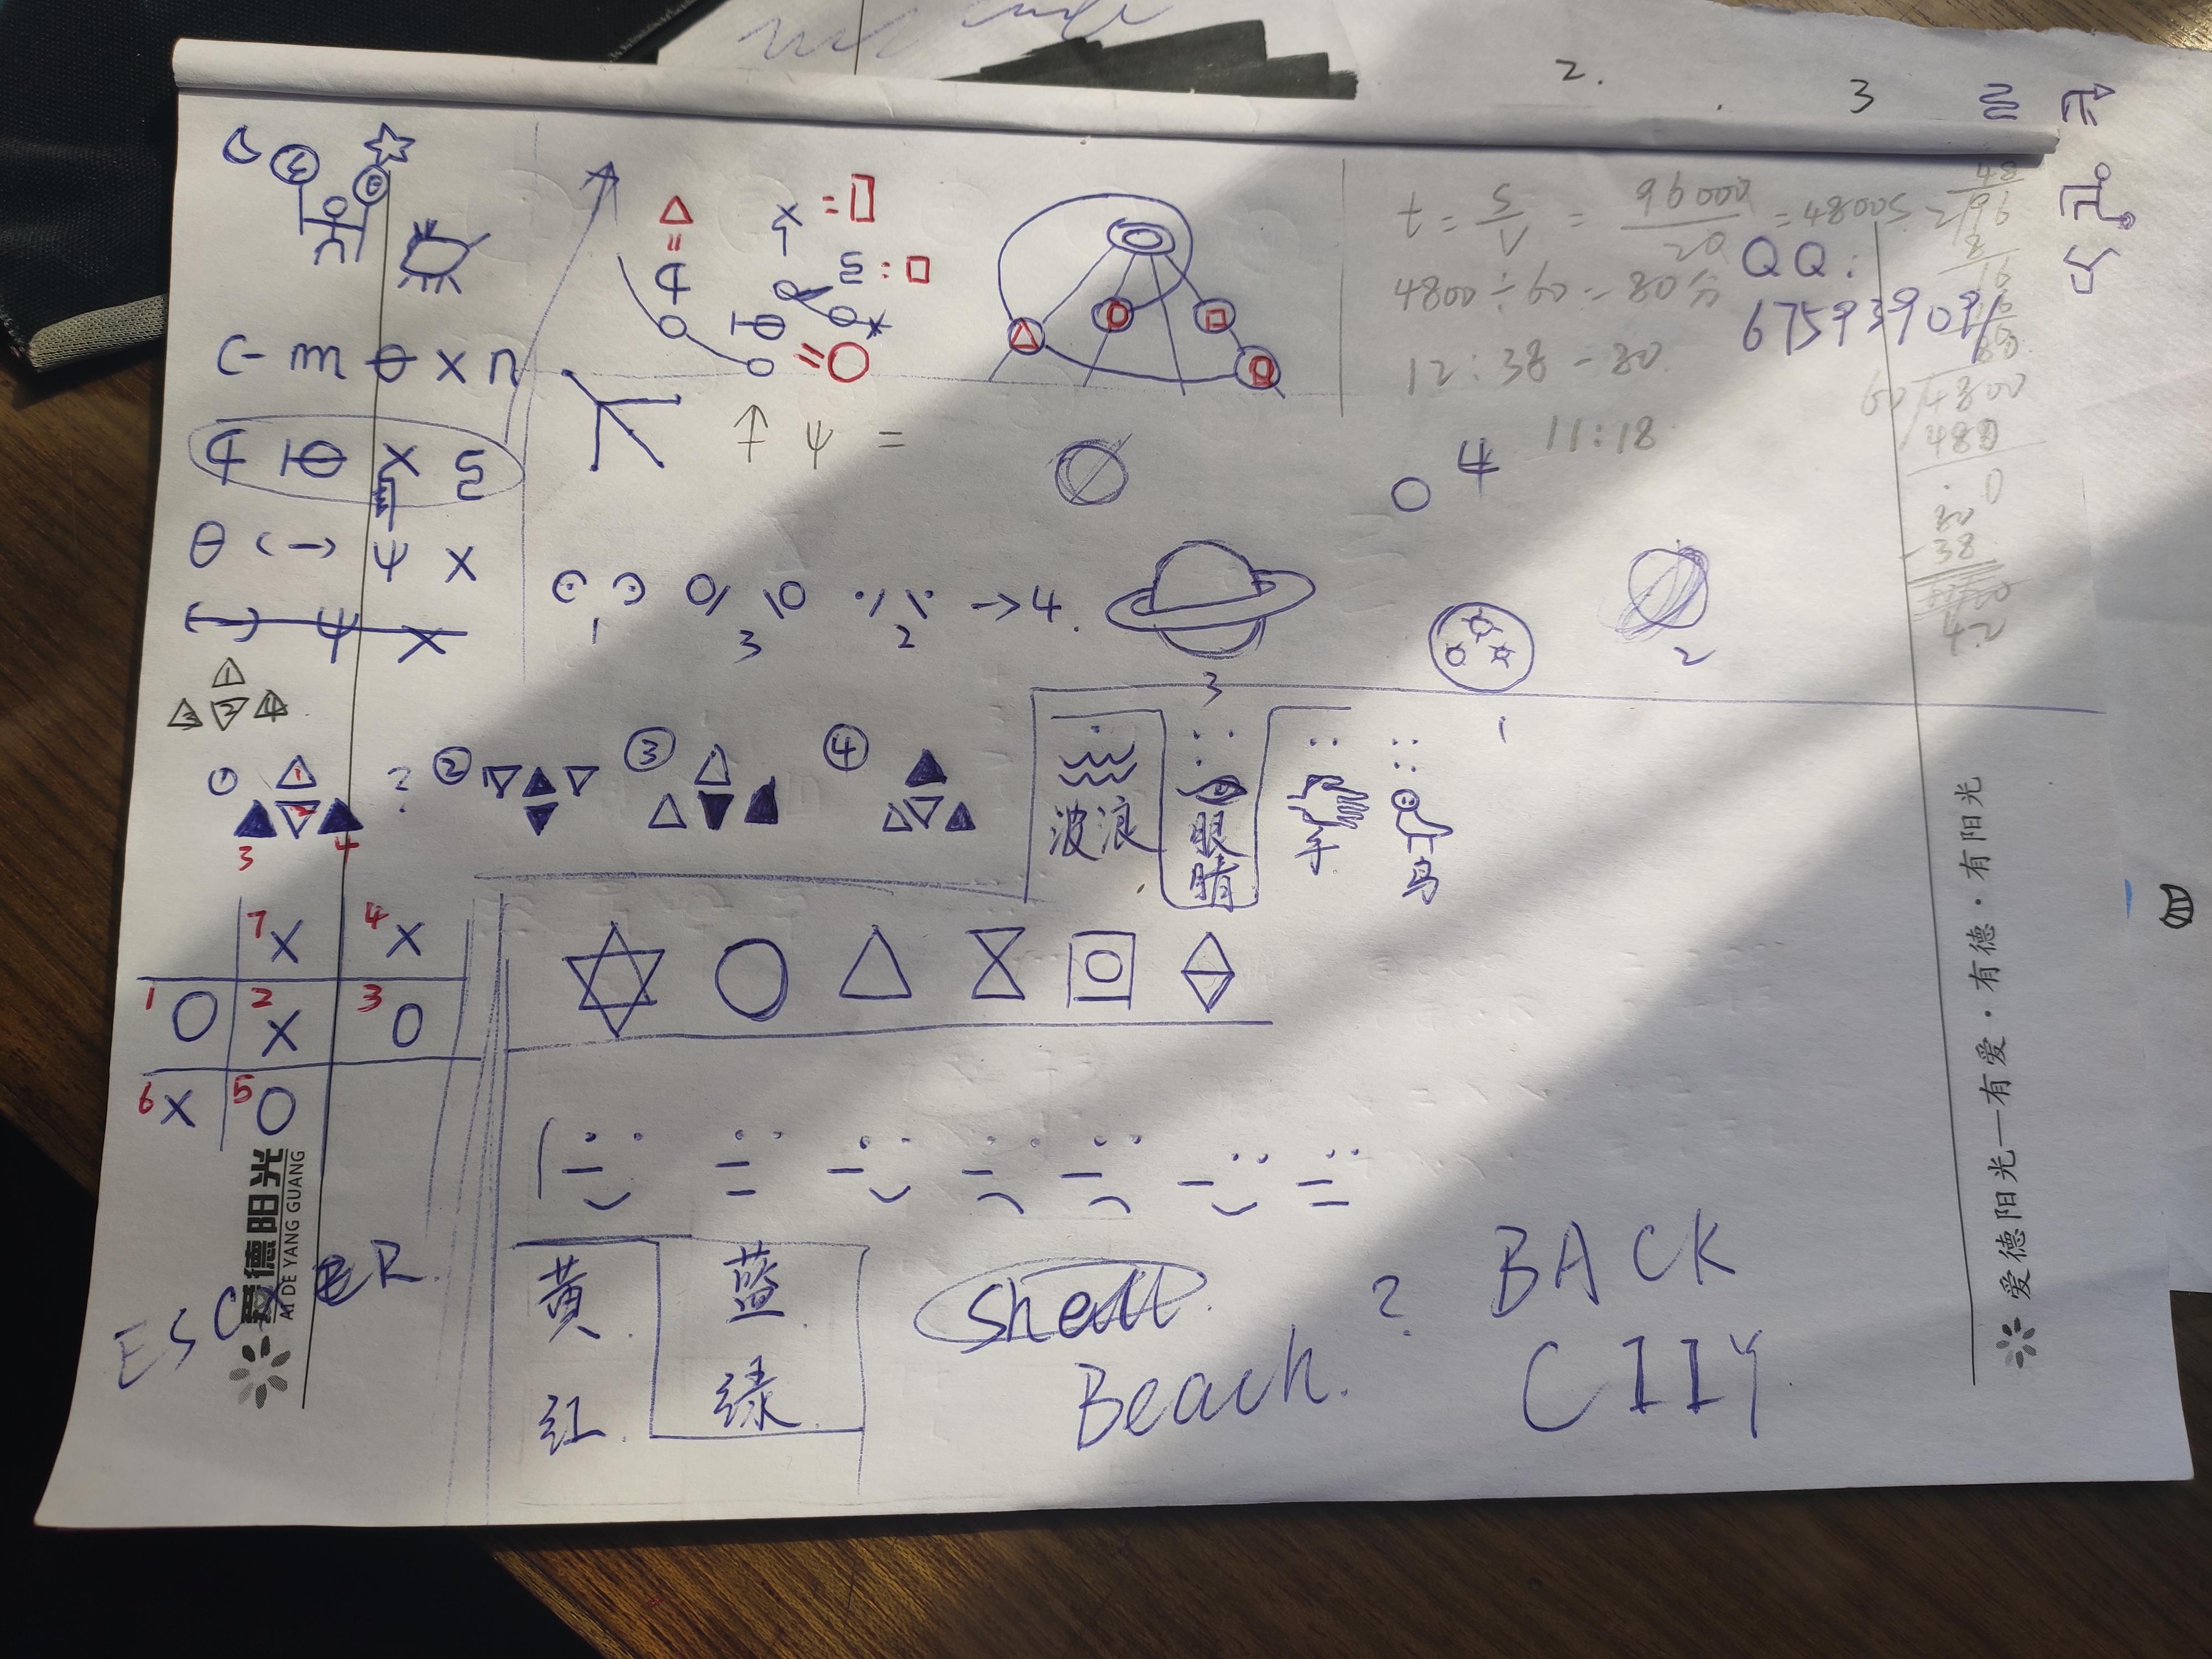 2.
3
t = S/V = 96000/20 = 4800S
4800÷60=80分
12:38-80
11:18
QQ:
675939091
48
2/96
8
16
60/4800
480
0
80
-38
42
C- m θ x n
θ (-) ψ x
(-) ψ x
↑ ψ =
4
1 3 2 →4.
3
1
2
1
3 2 4
① ? ② ③ ④
1
2
3 4
波浪
眼睛
手
鸟
7 X 4 X
1 O 2 X 3 O
6 X 5 O
爱德阳光
AI DE YANG GUANG
ESC
ER.
黄
红
蓝
绿
Shell
Beach.
?
BACK
CIIY
爱德阳光—有爱·有德·有阳光